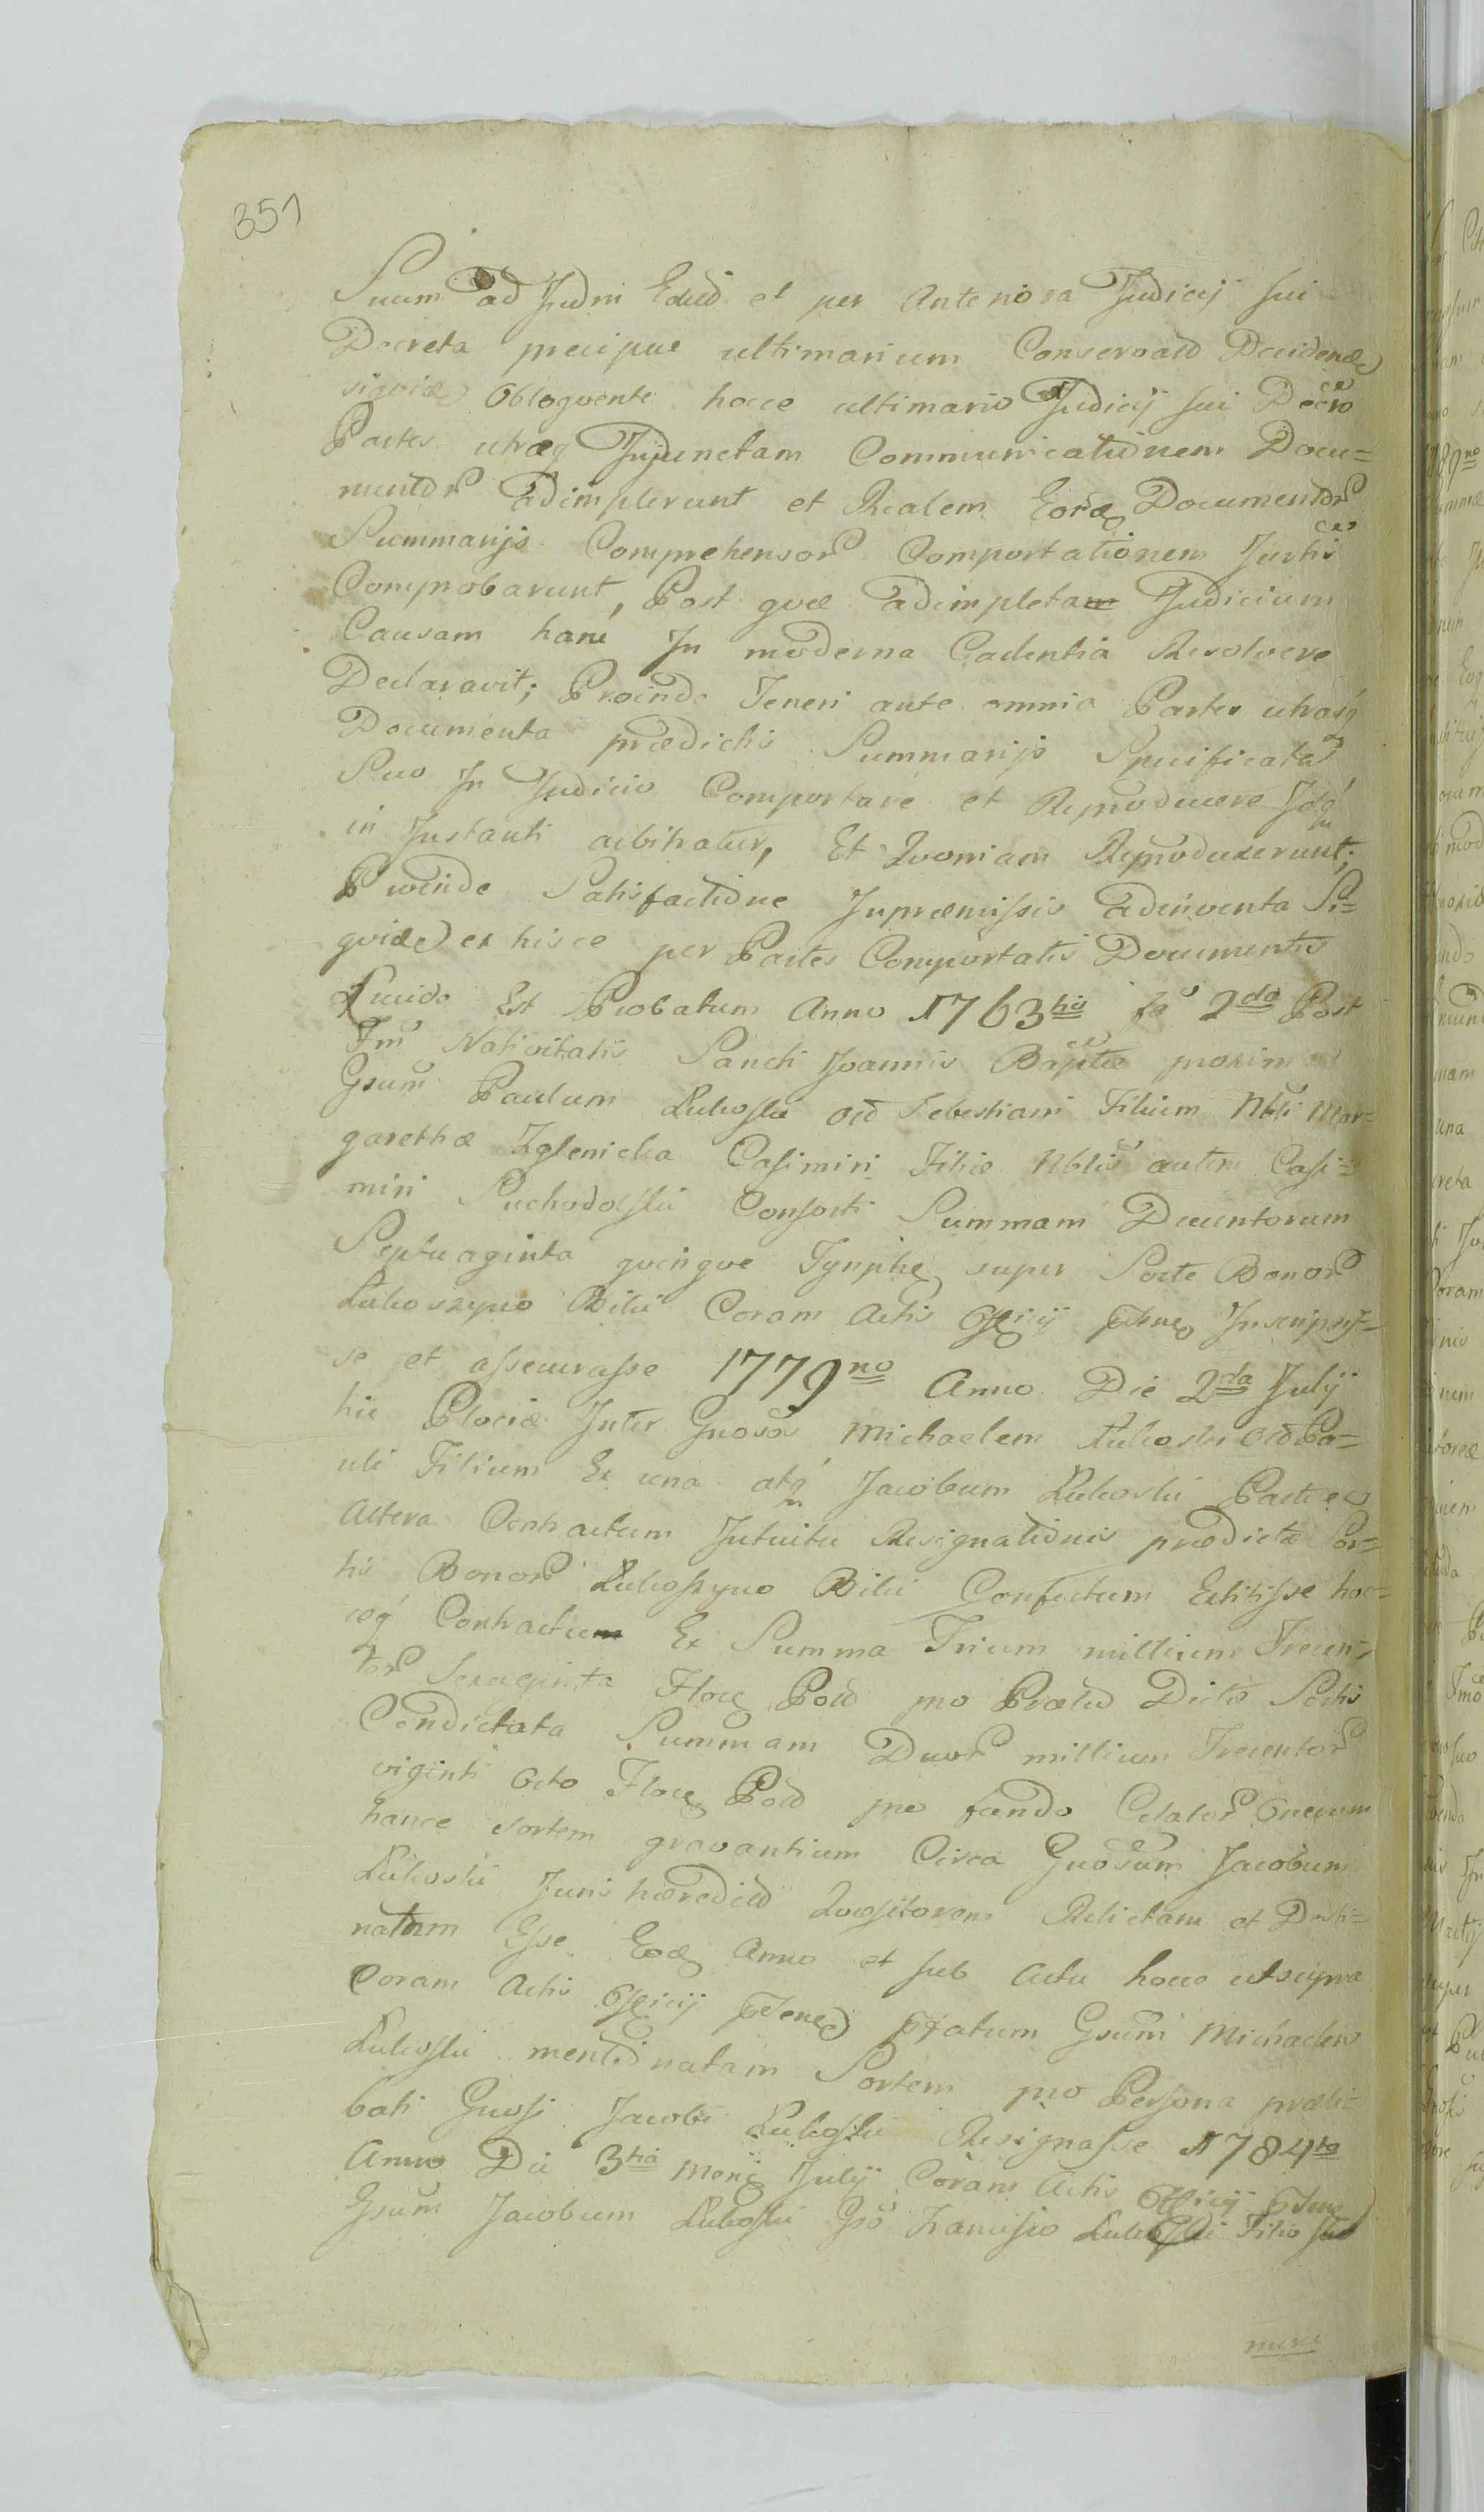 351
Suum ad Judm Edud et per Anteriora Judicij sui
Decreta precipue ultimarium Conservand Decidend
siquid Obloquente hocce ultimario Judicij sui Decro
Partes utraq Injunctam Communicationem Docu=
mentor adimplerunt et Realem Eord Documentor
Summarijs Comprehensor Comportationem Jurtis
Comprobarunt, Post quæ adimpleta Judicium
Causam hanc In moderna Cadentia Resolvere
Declaravit; Proinde Teneri ante omnia Partes utrasq
Documenta prædictis Summarijs Specificata
Suo In Judicio Comportare et Reproducere Idq
in Instanti arbitratur, Et Quoniam Reproduxerunt;
Proinde Satisfactione Inpræmissis adinventa Si=
quid ex hisce per Partes Comportatis Documentis
Lucide Est Probatum Anno 1763tio fa 2da Post
Fm Nativitatis Sancti Joannis Baptæ proxim
Gsum Paulum Lukoski od Sebestiani Filium Nbli Mar=
garethæ Zglenicka Casimiri Filiæ Nblis autem Casi=
miri Suchodolski Consorti Summam Ducentorum
Septuaginta quinque Tynphe super Sorte Bonor
Lukoszyno Biki Coram Actis Officij Inscripsis=
se et assecurasse 1779no Anno Die 2da Julij
hic Plociæ Inter Gnosos Michaelem Lukoski od Pa=
uli Filium Ex una atq Jacobum Lukoski Partes
Altera Contractum Intuitu Resignationis prædictæ Sor=
tis Bonor Lukoszyno Biki Confectum Extitisse hoc=
coq Contractu Ex Summa Trium millium Trecen=
tor Sexaginta Flor Pold pro Præed Dictæ Sortis
Condictata Summam Duor millium Trecentor
viginti octo Flor Pold pro fundo Celator Onerum
hance sortem gravantium Circa Gnosum Jacobum
Lukoski Juris hæredied Quæsitorem Relictam et Desti=
natam Esse Eod Anno et sub Actu hocce ut supra
Coram Actis Officij pftatum Gsum Michaelem
Lukoski mentionatam Sortem pro Persona præli=
bati Gnosi Jacobi Lukoski Resignasse 1784to
Anno Die 3tia mens Julij Coram Actis Officij
Gsum Jacobum Lukoski Gso Francisco Lukoski Filio suo